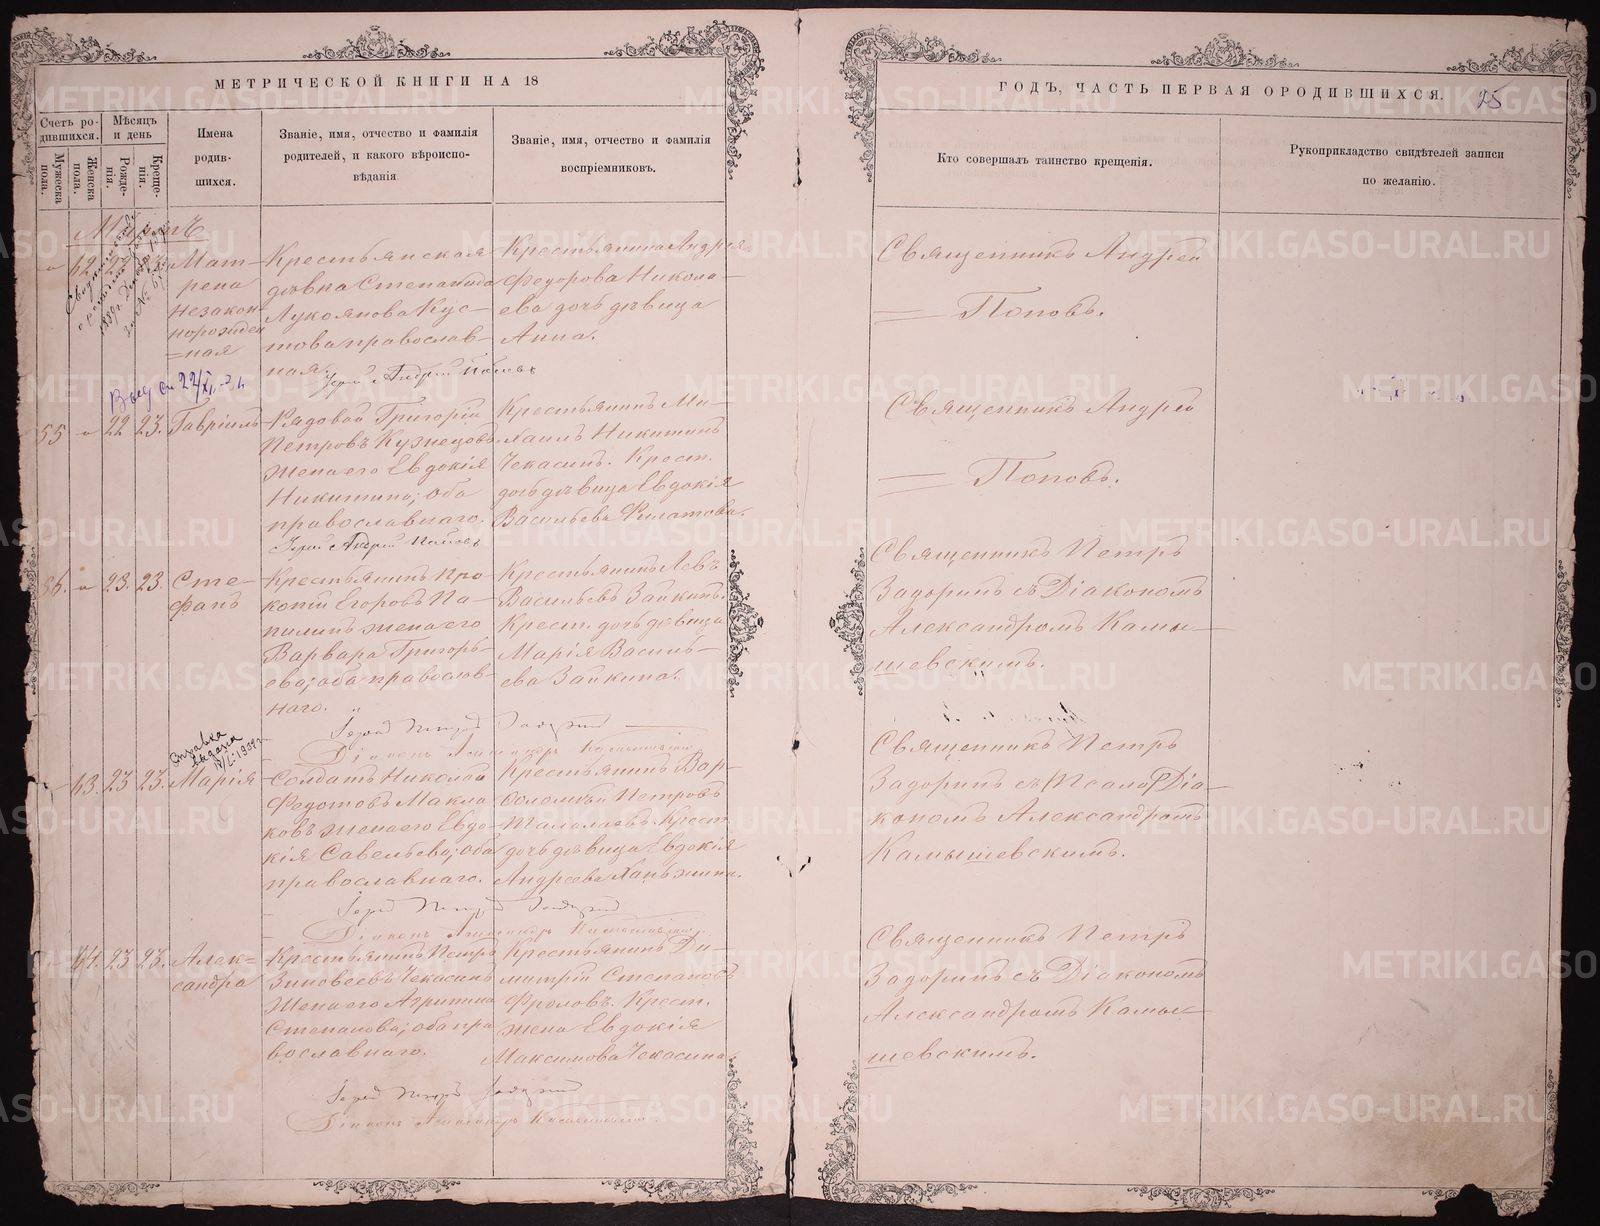 МЕТРИЧЕСКОЙ КНИГИ НА 18
ГОДЪ, ЧАСТЬ ПЕРВАЯ О РОДИВШИХСЯ. 25
Счетъ ро-
дившихся.
Мужеска
пола.
Женска
пола.
Мѣсяцъ
и день
Рожде-
нія.
Креще-
нія.
Имена
родив-
шихся.
Званіе, имя, отчество и фамилія
родителей, и какого вѣроиспо-
вѣданія
Званіе, имя, отчество и фамилія
воспріемниковъ.
Кто совершалъ таинство крещенія.
Рукоприкладство свидѣтелей записи
по желанію.
62
Мат-
рена
незакон-
норожден
=ная
Крестьянская
дѣвка Степанида
Лукоянова Кус-
това православ-
ная.
Іерей Андрей Поповъ
Крестьянина Андрея
Федорова Никола-
ева дочь дѣвица
Анна.
Священникъ Андрей
Поповъ.
55 22 23. Гавріилъ
Рядовой Григорій
Петровъ Кузнецовъ
жена его Евдокія
Никитина; оба
православнаго.
Іерей Андрей Поповъ
Крестьянинъ Ми-
хаилъ Никитинъ
Чекасинъ. Крест.
дочь дѣвица Евдокія
Васильева Филатова.
Священникъ Андрей
Поповъ.
56. 23. 23. Сте-
фанъ
Крестьянинъ Про-
копій Егоровъ Па-
пилинъ жена его
Варвара Григорь-
ева; оба православ-
наго.
Крестьянинъ Левъ
Васильевъ Зайкинъ.
Крест. дочь дѣвица
Марія Василь-
ева Зайкина.
Священникъ Петръ
Задоринъ съ Діакономъ
Александромъ Камы-
шевскимъ.
Справка
выдана
1939 г.
63. 23 23. Марія
Солдатъ Николай
Федотовъ Макла-
ковъ жена его Евдо-
кія Савельева; оба
православнаго.
Крестьянинъ Вар-
ѳоломей Петровъ
Талалаевъ. Крест.
дочь дѣвица Евдокія
Андреева Ханжина.
Священникъ Петръ
Задоринъ съ Діа-
кономъ Александромъ
Камышевскимъ.
64. 23 23. Алек-
сандра
Крестьянинъ Петръ
Зиновеевъ Чекасинъ
жена его Агрипина
Степанова; оба пра-
вославнаго.
Крестьянинъ Ди-
митрій Степановъ
Фроловъ. Крест.
жена Евдокія
Максимова Чекасина.
Священникъ Петръ
Задоринъ съ Діакономъ
Александромъ Камы-
шевскимъ.
METRIKI.GASO-URAL.RU